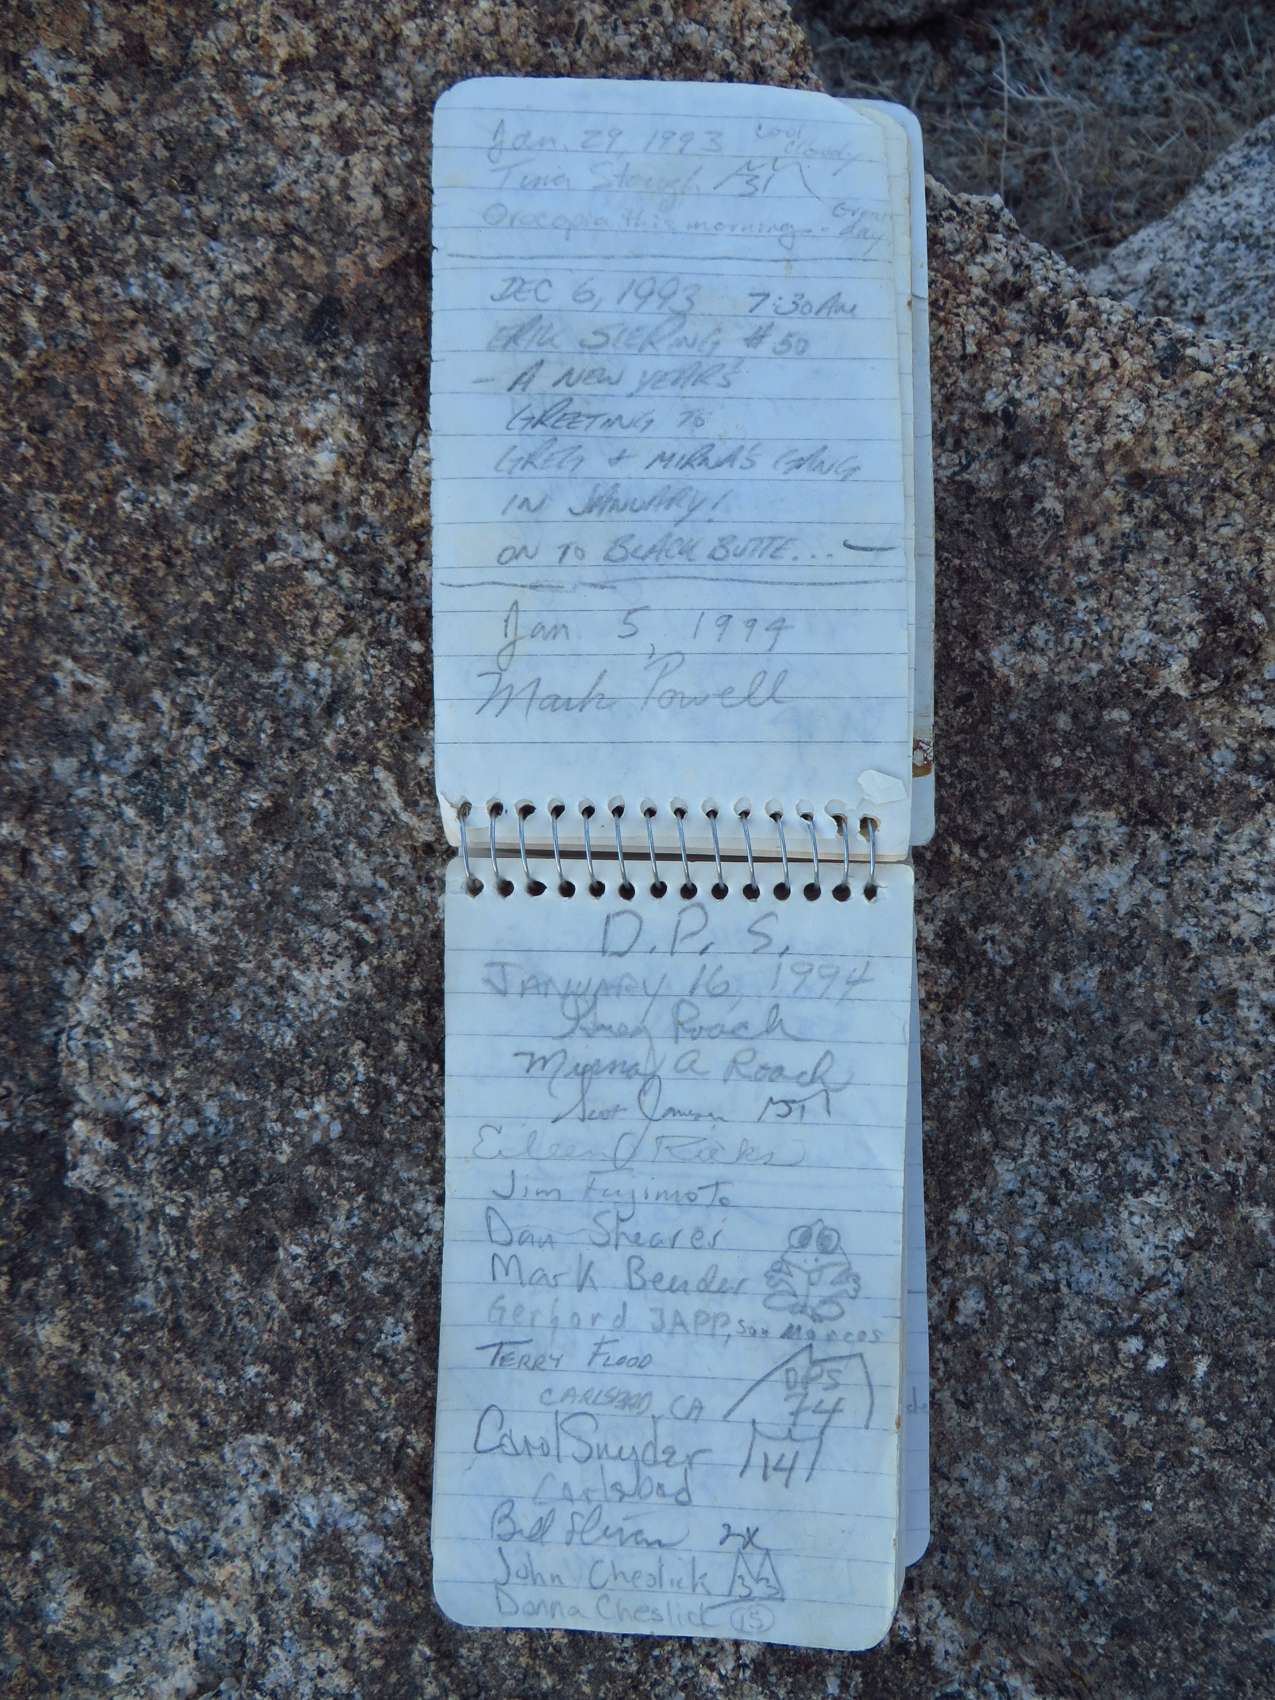 Jan. 29, 1993 Cool Cloudy
Tina Stough 31
Orocopia this morning --
day
DEC 6, 1993 7:30AM
ERIK SIERING #50
- A NEW YEARS
GREETING TO
GREG + MIRNA'S GANG
IN JANUARY!
ON TO BLACK BUTTE...
Jan 5, 1994
Mark Powell
D.P.S.
JANUARY 16, 1994
Greg Roach
Mirna A Roach
Scot Jamison
Eileen Ricks
Jim Fujimoto
Dan Shearer
Mark Bender
Gerhard JAPP, San Marcos
TERRY FLOOD
DPS
CARLSBAD, CA 74
Carol Snyder 14
Carlsbad
Bill 2x
John Cheslick 33
Donna Cheslick 15